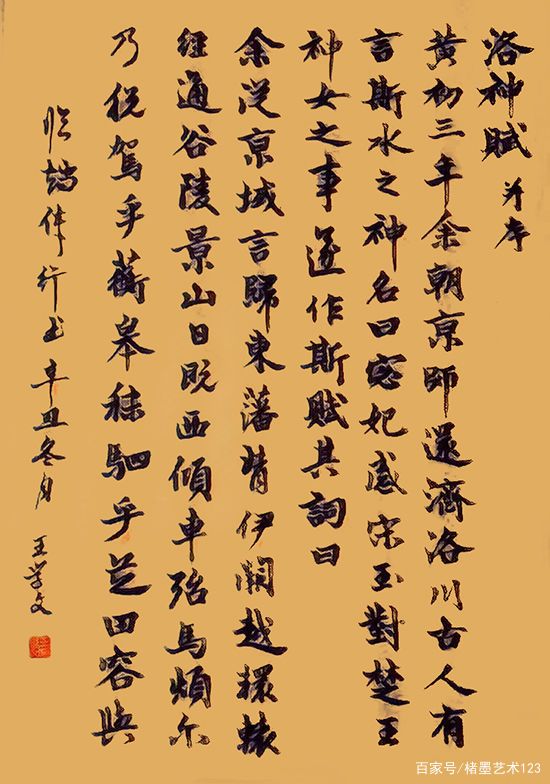 洛神賦 并序
黄初三年余朝京師還濟洛川古人有
言斯水之神名曰宓妃感宋玉對楚王
神女之事遂作斯賦其詞曰
余從京域言歸東藩背伊闕越轘轅
經通谷陵景山日既西傾車殆馬煩尔
乃税駕乎蘅皋秣駟乎芝田容與
臨 行书辛丑冬月 王学文
百家号/楮墨艺术123